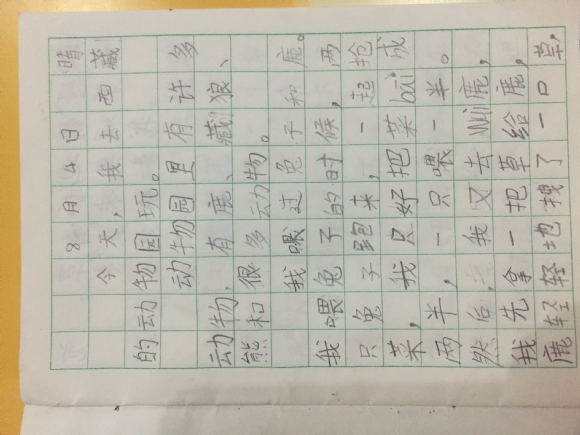 8月4日 晴
今天,我去西藏
的动物园玩。
动物园里有许多
动物,有鹿、藏狼、
熊和很多动物。
我喂过兔子和鹿。
我喂兔子的时候,两
只兔子跑来,一起抢
菜,我只好把菜bāi成
两半,一只喂一半。
然后,我又去鹿,
我先拿一把草给鹿,
鹿轻轻地拽了一口草,